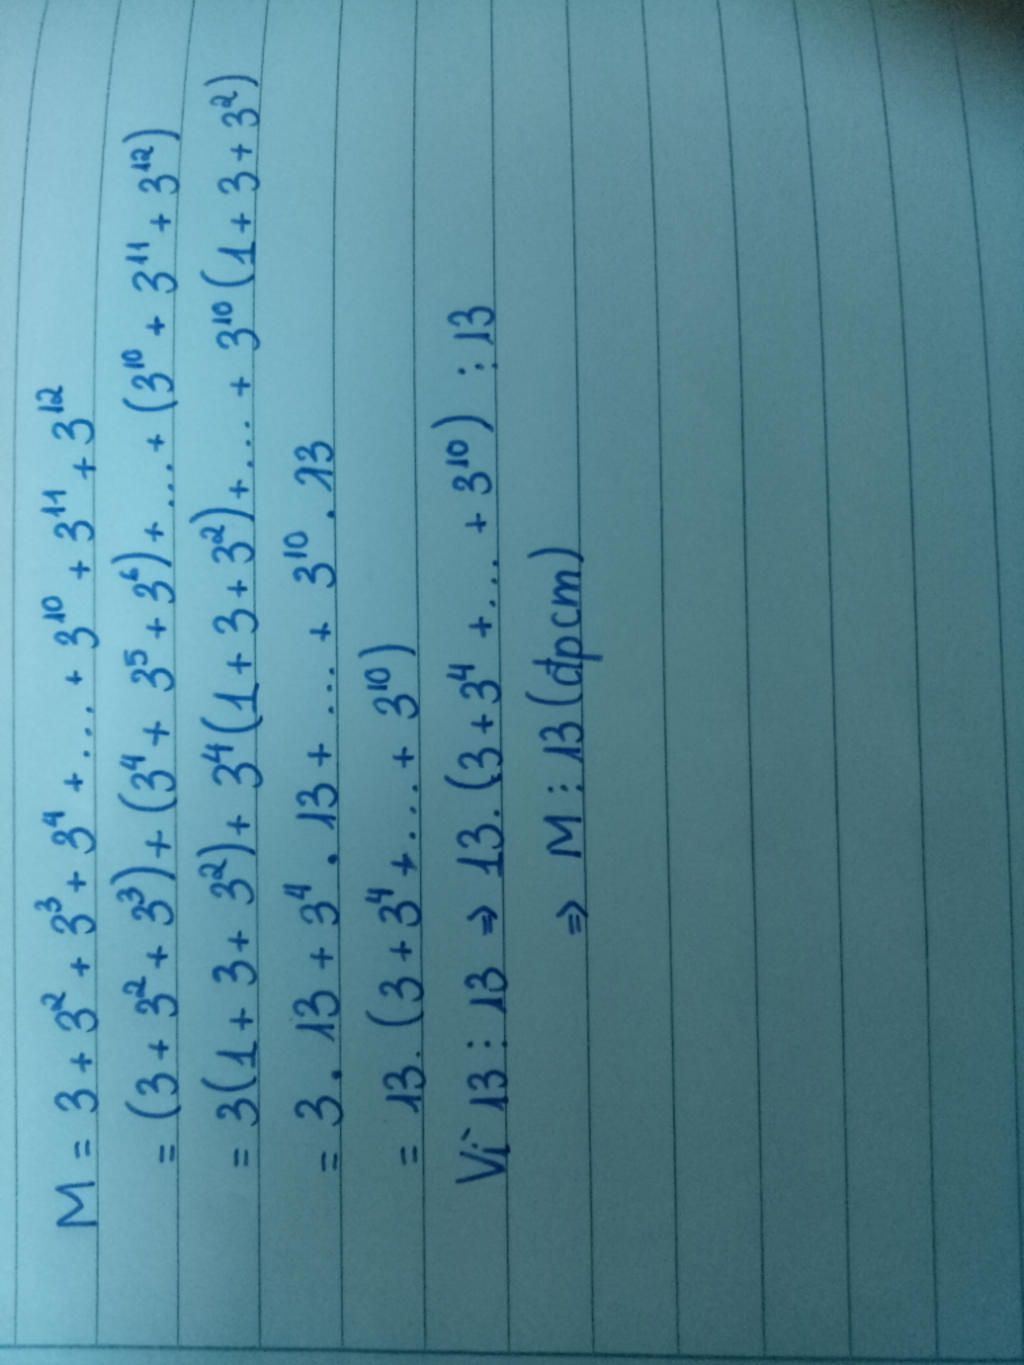 M = 3 + 3² + 3³ + 3⁴ + ... + 3¹⁰ + 3¹¹ + 3¹²
= (3 + 3² + 3³) + (3⁴ + 3⁵ + 3⁶) + ... + (3¹⁰ + 3¹¹ + 3¹²)
= 3(1 + 3 + 3²) + 3⁴(1 + 3 + 3²) + ... + 3¹⁰(1 + 3 + 3²)
= 3 . 13 + 3⁴ . 13 + ... + 3¹⁰ . 13
= 13 . (3 + 3⁴ + ... + 3¹⁰)
Vì 13 ⋮ 13 ⇒ 13 . (3 + 3⁴ + ... + 3¹⁰) ⋮ 13
⇒ M ⋮ 13 (đpcm)